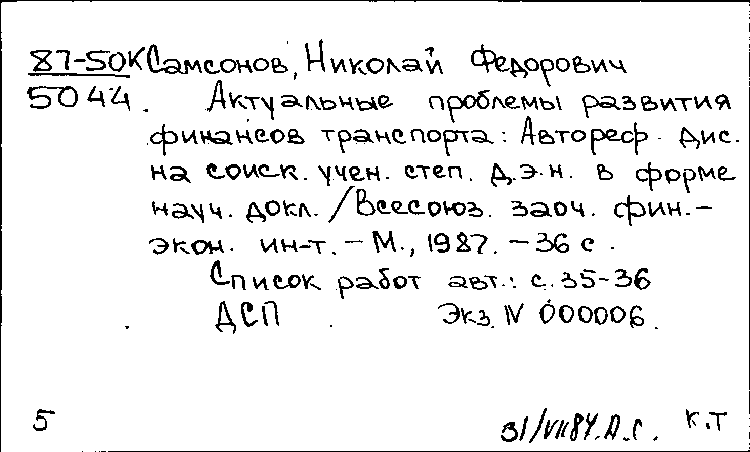 87-50К Самсонов, Николай Федорович
5044. Актуальные проблемы развития
финансов транспорта: Автореф. дис.
на соиск. учен. степ. д.э.н. в форме
науч. докл. / Всесоюз. заоч. фин.-
экон. ин-т. – М., 1987. – 36 с.
Список работ авт.: с. 35-36
ДСП Экз. N 000006.
5 31/VII 87. А.С. К.Т